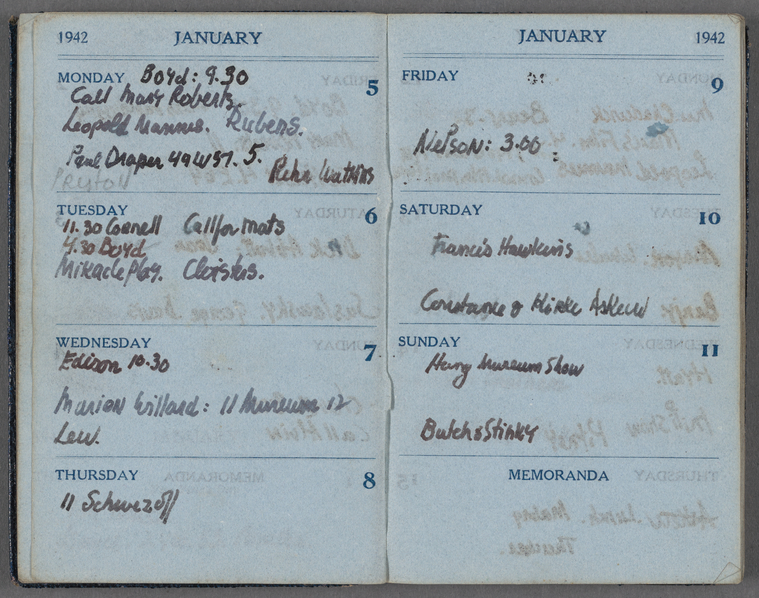 1942 JANUARY
MONDAY 5
Boyd: 9.30
Call Mary Roberts.
Leopold Mannes. Rubens.
Paul Draper 49 W 57. 5.
Peyton
Watkins
TUESDAY 6
11.30 Cornell Call for mats
4.30 Boyd
Miracle Play. Cloisters.
WEDNESDAY 7
Edison 10.30
Marion Willard: 11 Museum 12
Lew.
THURSDAY 8
11 Schwezoff
JANUARY 1942
FRIDAY 9
Nelson: 3.00
SATURDAY 10
Francis Hawkins
Constance & Kirke Askew
SUNDAY 11
Harry Museum Show
Butch & Stinky
MEMORANDA